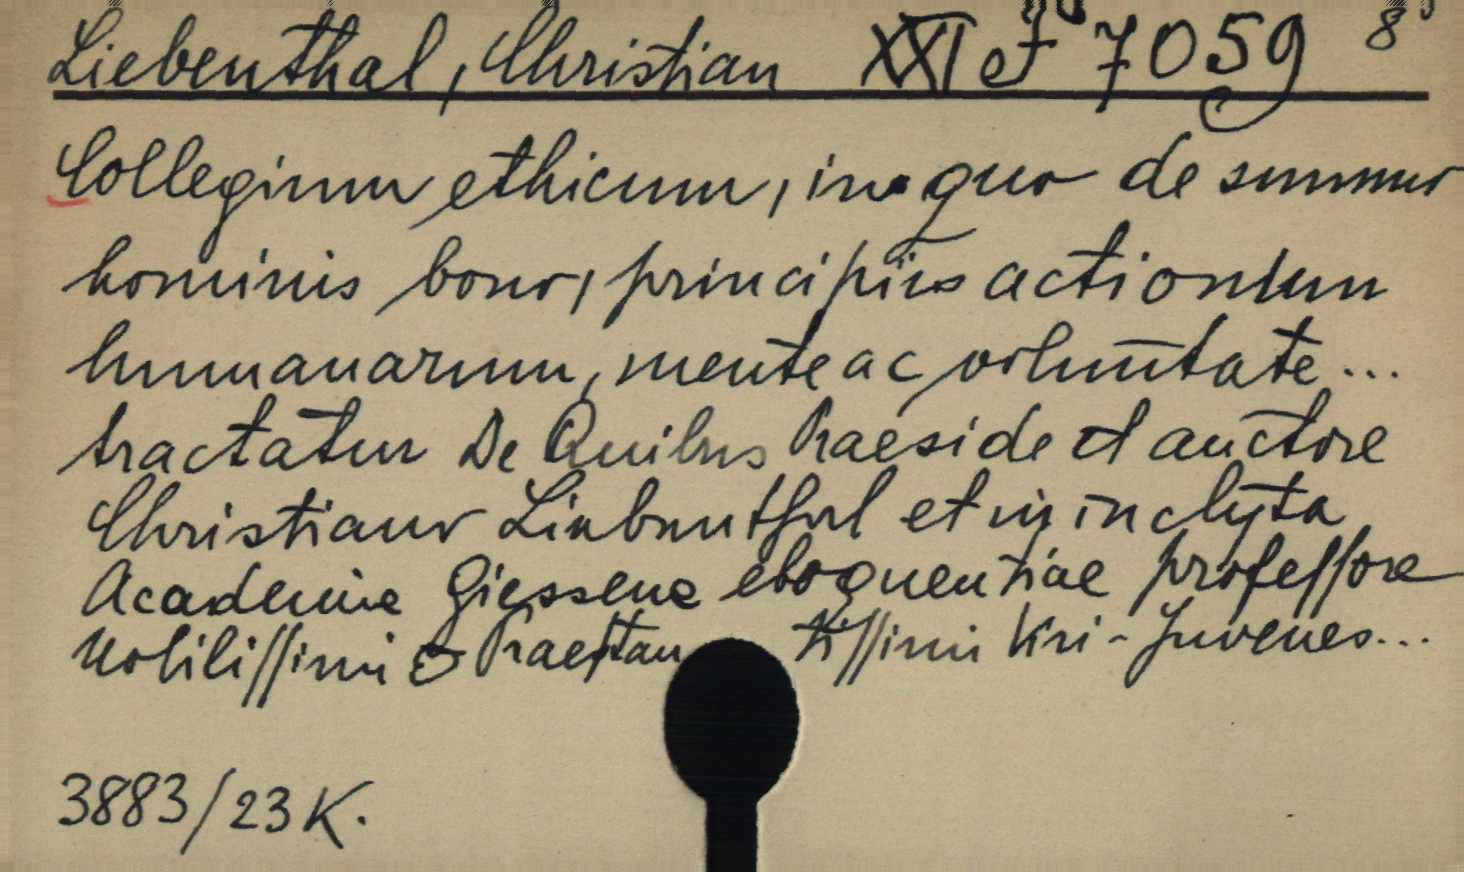 Liebenthal, Christian XXI e F 7059 8°
Collegium ethicum, in quo de summo
hominis bono, principiis actionum
humanarum, mente ac voluntate...
tractatur De Quibus Praeside et auctore
Christiano Liebenthal et in inclyta
Academia Giessena eloquentiae professore
Nobilissimi & Praestantissimi Viri-Juvenes...
3883/23 K.